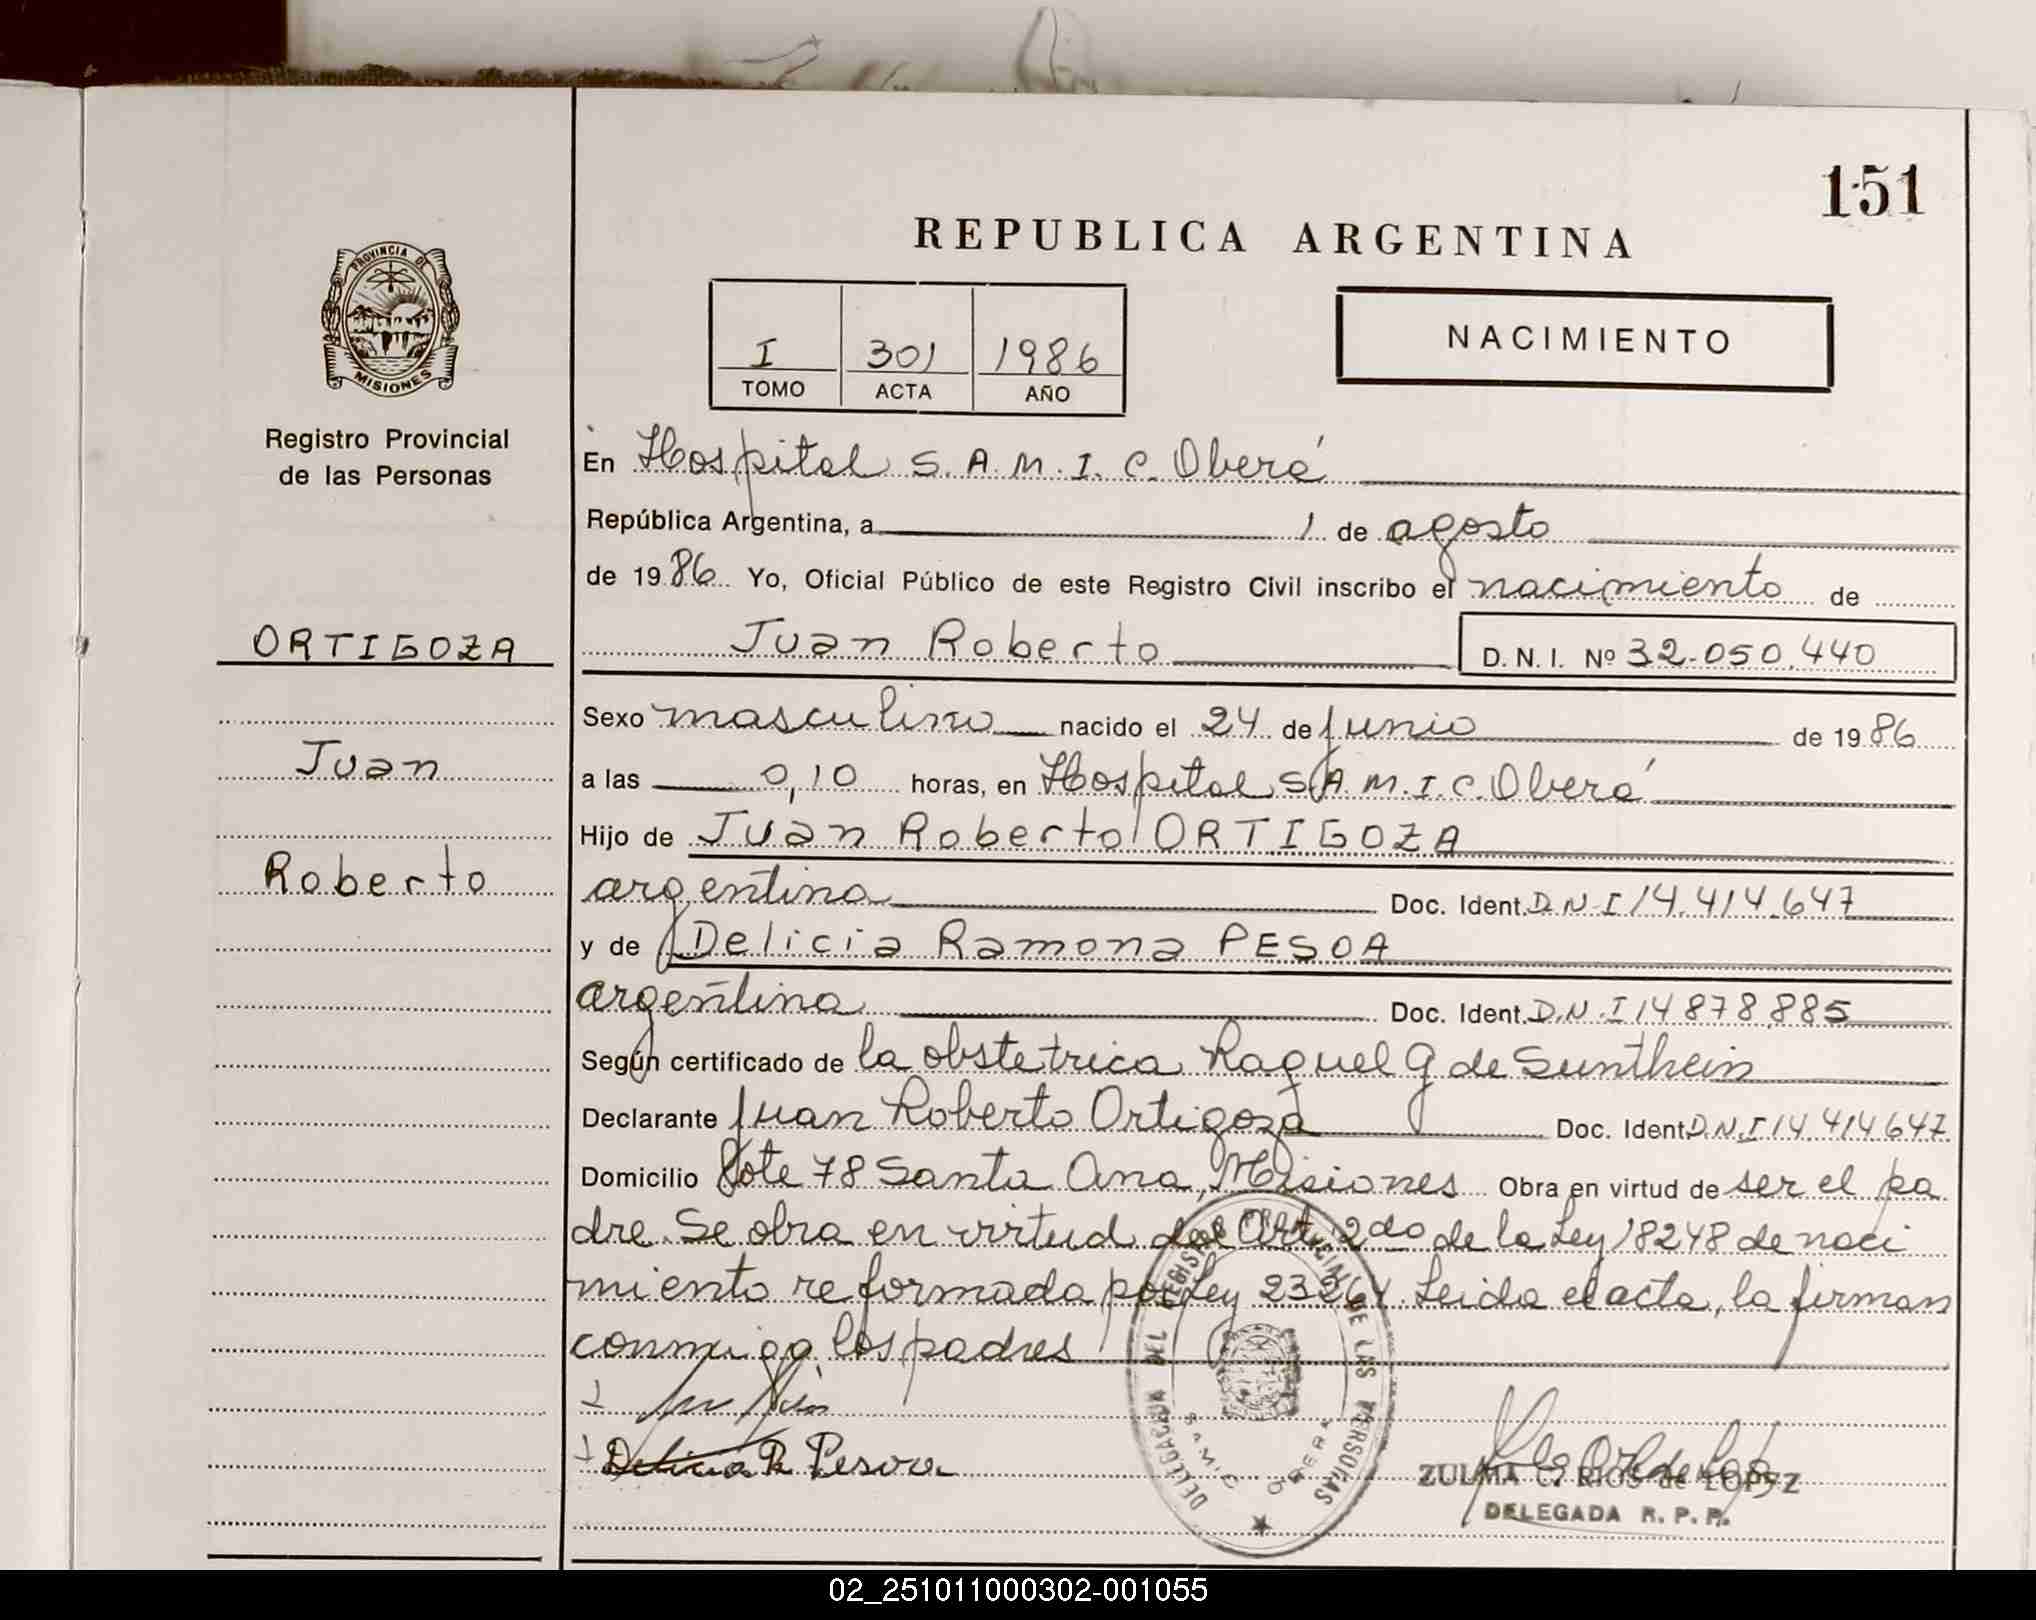 151
REPUBLICA ARGENTINA
PROVINCIA DE
MISIONES
Registro Provincial
de las Personas
I 301 1986
TOMO ACTA AÑO
NACIMIENTO
En Hospital S.A.M.I.C. Oberá
República Argentina, a 1 de agosto
de 1986 Yo, Oficial Público de este Registro Civil inscribo el nacimiento de
ORTIGOZA
Juan Roberto D.N.I. Nº 32.050.440
Sexo masculino nacido el 24 de junio de 1986
Juan
a las 0,10 horas, en Hospital S.A.M.I.C. Oberá
Hijo de Juan Roberto ORTIGOZA
Roberto
argentina Doc. Ident. D.N.I 14.414.647
y de Delicia Ramona PESOA
argentina Doc. Ident. D.N.I 14878.885
Según certificado de la obstetrica Raquel G de Sunthein
Declarante Juan Roberto Ortigoza Doc. Ident. D.N.I 14 414647
Domicilio Lote 78 Santa Ana, Misiones Obra en virtud de ser el pa
dre. Se obra en virtud del Art. 2do de la Ley 18248 de naci
miento reformada por Ley 23264. Leida el acta, la firman
conmigo los padres
Delicia R Pesoa
DELEGACION DEL REGISTRO PROVINCIAL DE LAS PERSONAS
SAMIC OBERA
ZULMA C. RIOS de LOPEZ
DELEGADA R.P.P.
02_251011000302-001055